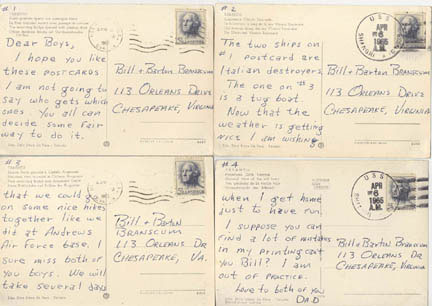 #1
TARANTO
Dear Boys,
I hope you like
these postcards.
I am not going to
say who gets which
ones. You all can
decide some fair
way to do it.
Bill + Barton Branscum
113 Orleans Drive
Chesapeake, Virginia
#2
TARANTO
The two ships on
#1 postcard are
Italian destroyers.
The one on #3
is a tug boat.
Now that the
weather is getting
nice I am wishing
U S S
APR
6
1965
A.M.
Bill + Barton Branscum
113 Orleans Drive
Chesapeake, Virginia
#3
TARANTO
that we could go
on some nice hikes
together like we
did at Andrews
Air Force base. I
sure miss both of
you boys. We will
take several days
Bill + Barton
Branscum
113 Orleans Dr
Chesapeake, Va.
#4
TARANTO
when I get home
just to have fun.
I suppose you can
find a lot of mistakes
in my printing can't
you Bill? I am
out of practice.
Love to both of you
DAD
U S S
APR
6
1965
A.M.
Bill + Barton Branscum
113 Orleans Dr
Chesapeake, Va.